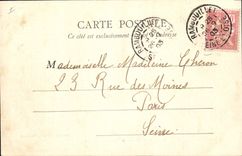 CARTE POSTALE
Ce côté est exclusivement réservé à l'adresse
RAMBOUILLET
RAMBOUILLET
Mademoiselle Madeleine Chéron
23 Rue des Moines
Paris
Seine